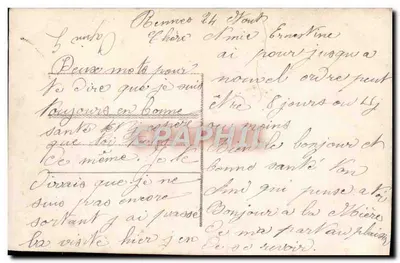 Rennes 24 Aout
Chère Amie Ernestine
Deux mots pour
te dire que je suis
toujours en bonne
santé et
que toi
de même. Je te
dirais que je ne
suis pas encore
sortant j ai passé
la visite hier j en
ai pour jusqu a
nouvel ordre peut
être 8 jours ou 4 j
ou moins
bonjour et
bonne santé Ton
Ami qui pense a toi
Bonjour a la Mère
de ma part au plaisir
de se revoir